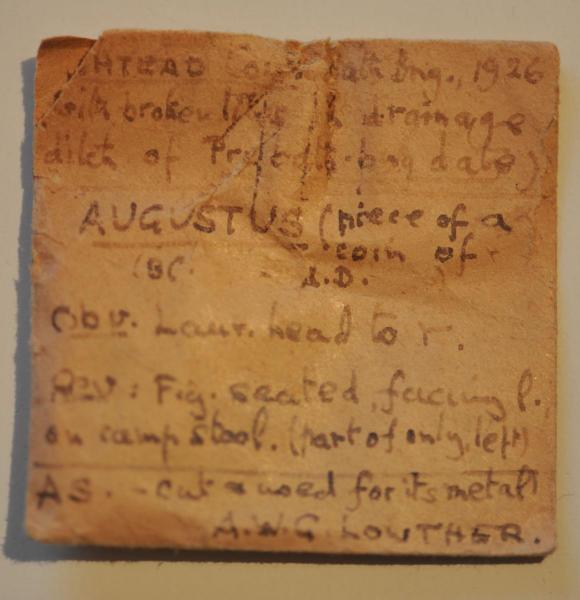 HTEAD Bath Bng., 1926
with broken tiles in drainage
ditch of date)
AUGUSTUS (piece of a
coin of
BC. A.D.
Obv. Laur. head to r.
Rev: Fig. seated, facing l.
on camp stool. (part of only, left)
AS. - cut & used for its metal
A.W.G. LOWTHER.